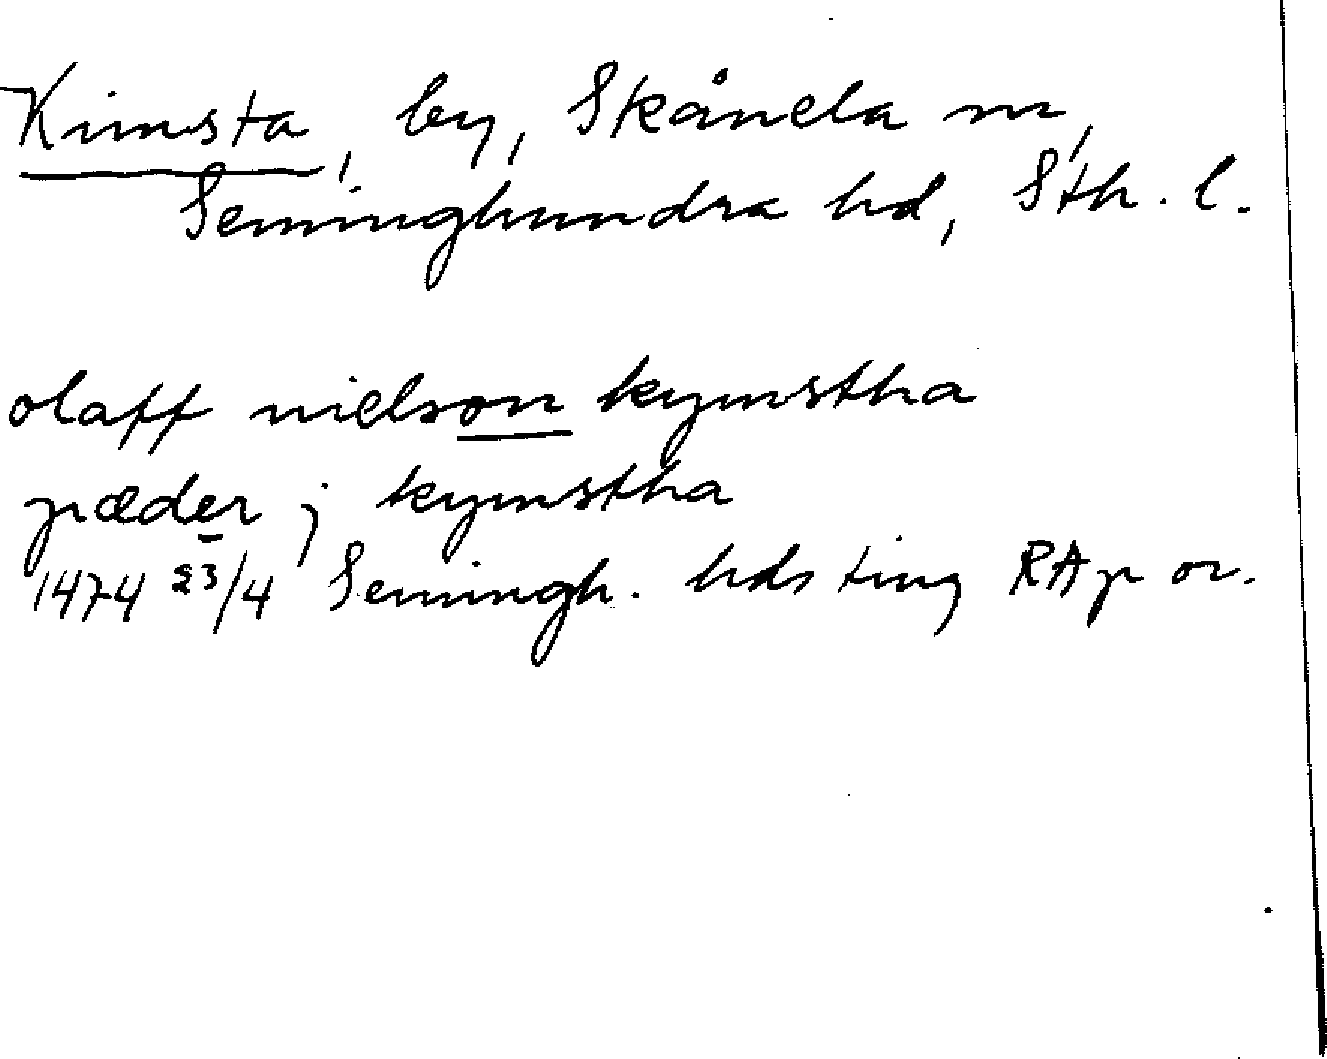 Kimsta, by, Skånela sn,
Seminghundra hd, Sth. l.
olaff nielson kymstha
pæder j kymstha
1474 23/4 Semingh. hds ting RAp or.